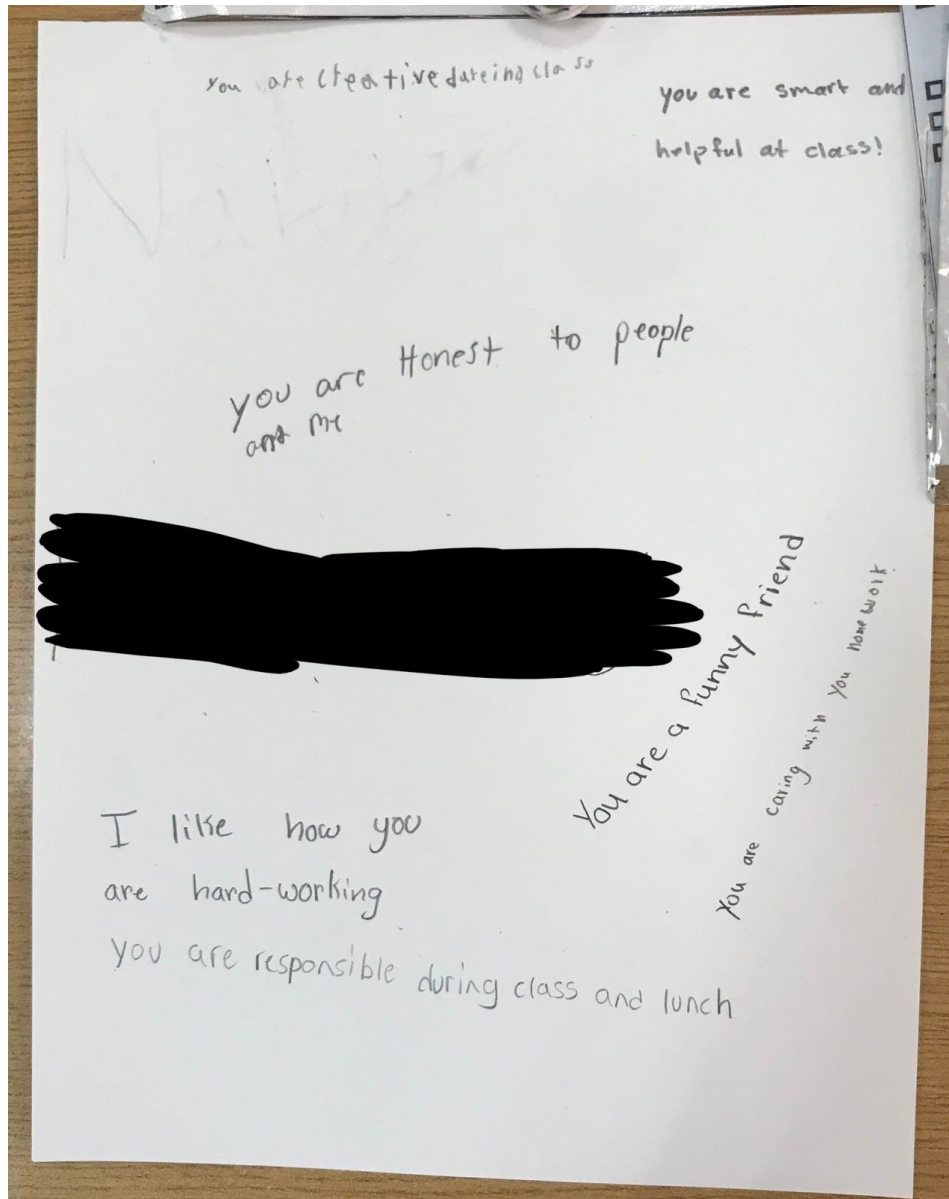 you are creative dureing class
you are smart and
helpful at class!
you are Honest to people
and me
You are a funny friend
You are caring with you homework
I like how you
are hard-working
you are responsible during class and lunch